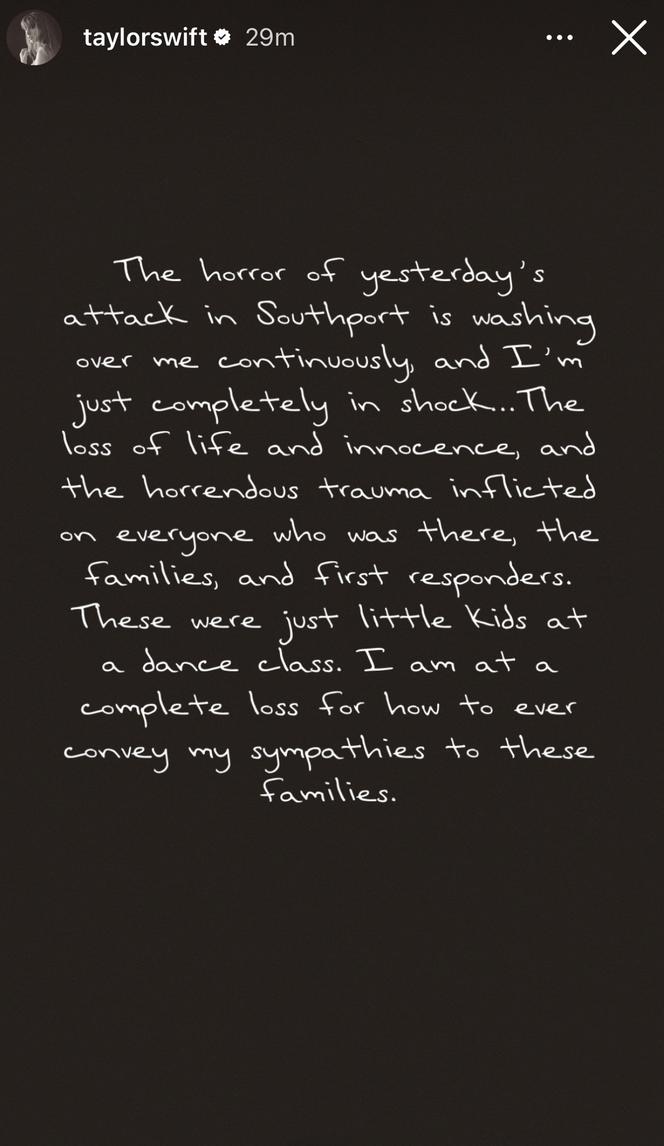 taylorswift 29m
The horror of yesterday's
attack in Southport is washing
over me continuously, and I'm
just completely in shock...The
loss of life and innocence, and
the horrendous trauma inflicted
on everyone who was there, the
families, and first responders.
These were just little kids at
a dance class. I am at a
complete loss for how to ever
convey my sympathies to these
families.